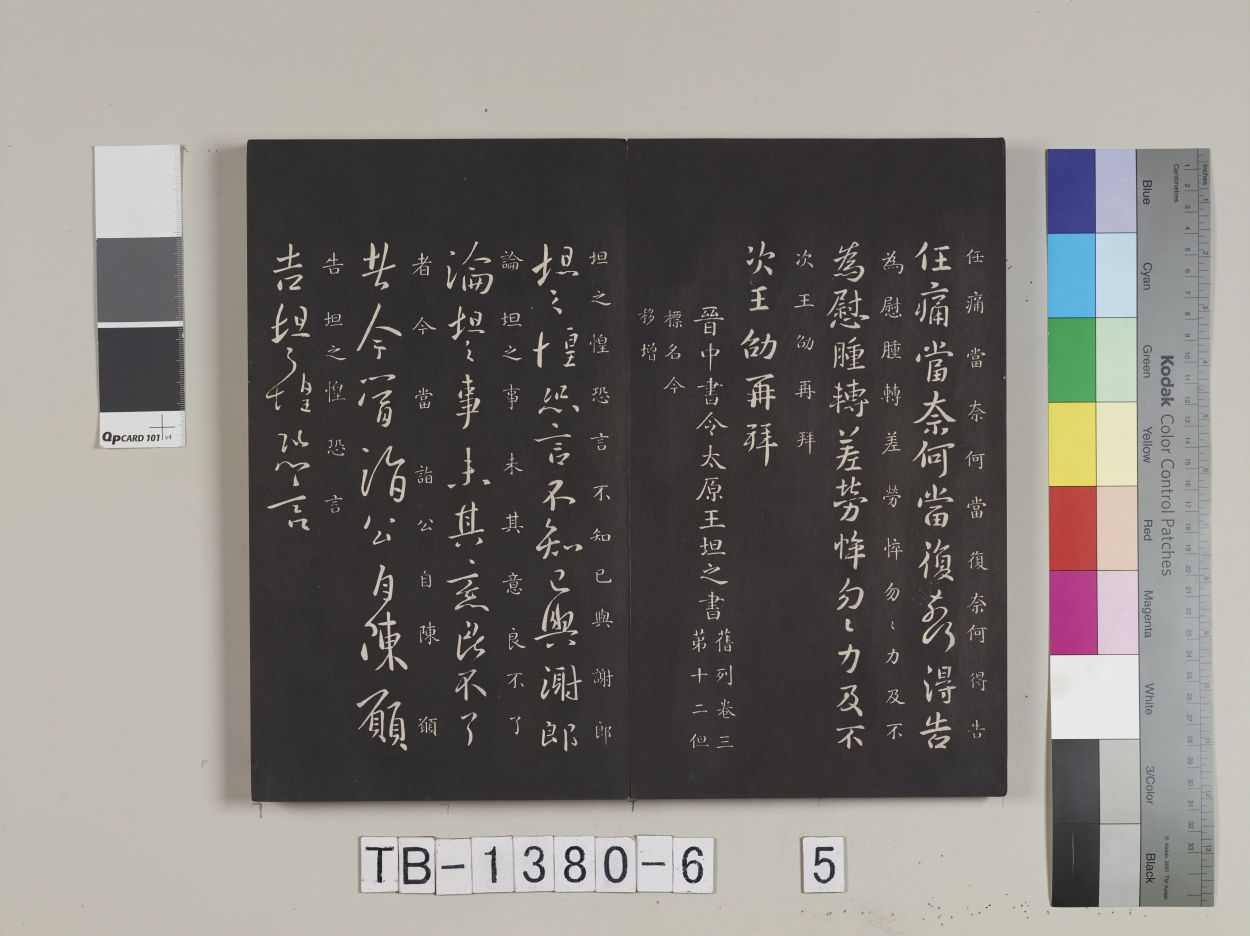 任痛當奈何當復奈何得告
任痛當奈何當復奈何得告
為慰腫轉差勞悴勿〻力及不
為慰腫轉差勞悴勿〻力及不
次王劭再拜
次王劭再拜
晉中書令太原王坦之書
舊列卷三
第十二但
標名今
移增
坦之惶恐言不知已與謝郎
坦之惶恐言不知已與謝郎
論坦之事未其意良不了
論坦之事未其意良不了
者今當詣公自陳願
者今當詣公自陳願
告坦之惶恐言
告坦之惶恐言
QPCARD 101 v4
Kodak Color Control Patches
Blue
Cyan
Green
Yellow
Red
Magenta
White
3/Color
Black
Inches
Centimetres
TB-1380-6 5